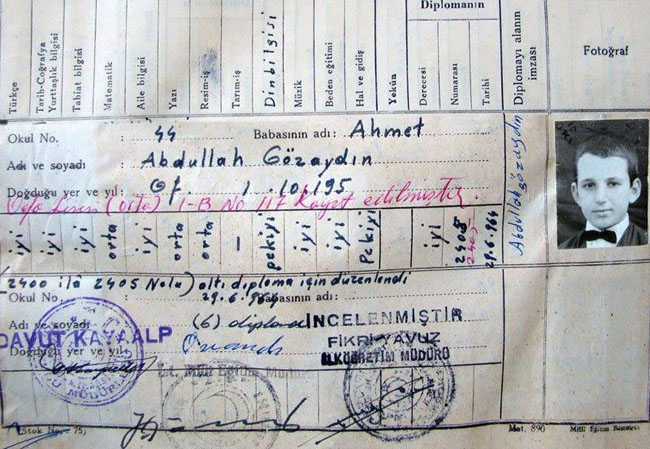 Türkçe
Tarih-Coğrafya
Yurttaşlık bilgisi
Tabiat bilgisi
Matematik
Aile bilgisi
Yazı
Resim-iş
Tarım-iş
Din bilgisi
Müzik
Beden eğitimi
Hal ve gidiş
Yekûn
Diplomanın
Derecesi
Numarası
Tarihi
Diplomayı alanın imzası
Fotoğraf
Okul No. 44 Babasının adı: Ahmet
Adı ve soyadı : Abdullah Gözaydın
Doğduğu yer ve yıl: Of. 1.10.195
Lisesi (orta) 1-B No 117 Kayıt edilmiştir.
iyi iyi iyi orta iyi orta orta — pekiyi iyi iyi Pekiyi iyi 2405 2405 29.6.964 Abdullah gözaydın
(2400 ilâ 2405 Nolu) altı diploma için düzenlendi
Okul No. : 29.6.964 Babasının adı:
Adı ve soyadı (6) diploma İNCELENMİŞTİR
DAVUT KAYAALP FİKRİ YAVUZ
Doğduğu yer ve yıl: Onandı İLKÖĞRETİM MÜDÜRÜ
Millî Eğitim Müdürü
Stok No. : 75,
Mat. 890 Millî Eğitim Basımevi